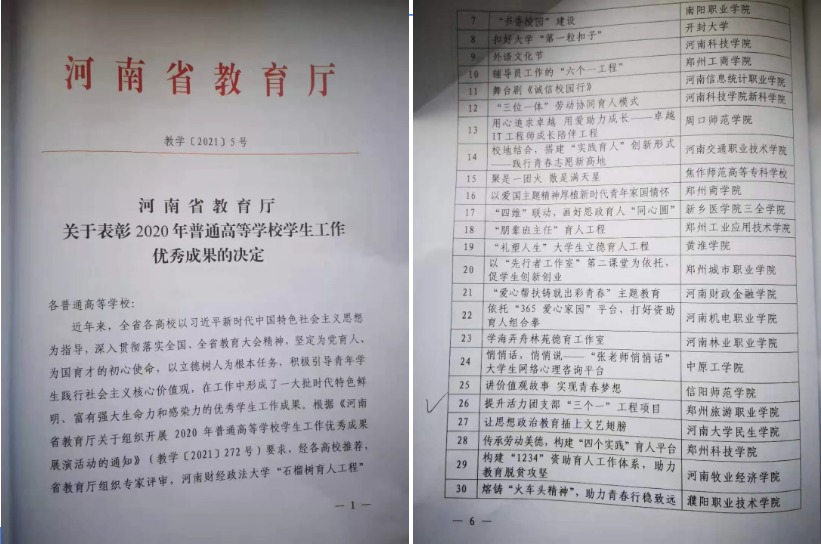 河南省教育厅
教学〔2021〕5号
河南省教育厅
关于表彰2020年普通高等学校学生工作
优秀成果的决定
各普通高等学校：
近年来，全省各高校以习近平新时代中国特色社会主义思想
为指导，深入贯彻落实全国、全省教育大会精神，坚定为党育人、
为国育才的初心使命，以立德树人为根本任务，积极引导青年学
生践行社会主义核心价值观，在工作中形成了一大批时代特色鲜
明、富有强大生命力和感染力的优秀学生工作成果。根据《河南
省教育厅关于组织开展2020年普通高等学校学生工作优秀成果
展演活动的通知》（教学〔2021〕272号）要求，经各高校推荐，
省教育厅组织专家评审，河南财经政法大学“石榴树育人工程”
—1—
7 “书香校园”建设 南阳职业学院
8 扣好大学“第一粒扣子” 开封大学
9 外语文化节 河南科技学院
10 辅导员工作的“六个一工程” 郑州工商学院
11 舞台剧《诚信校园行》 河南信息统计职业学院
12 “三位一体”劳动协同育人模式 河南科技学院新科学院
13 用心追求卓越 用爱助力成长——卓越
IT工程师成长陪伴工程 周口师范学院
14 校地结合，搭建“实践育人”创新形式
——践行青春志愿新高地 河南交通职业技术学院
15 聚是一团火 散是满天星 焦作师范高等专科学校
16 以爱国主题精神厚植新时代青年家国情怀 郑州商学院
17 “四维”联动，画好思政育人“同心圆” 新乡医学院三全学院
18 “朋辈班主任”育人工程 郑州工业应用技术学院
19 “礼塑人生”大学生立德育人工程 黄淮学院
20 以“先行者工作室”第二课堂为依托，
促学生创新创业 郑州城市职业学院
21 “爱心帮扶铸就出彩青春”主题教育 河南财政金融学院
22 依托“365爱心家园”平台，打好资助
育人组合拳 河南机电职业学院
23 学海弄舟林苑德育工作室 河南林业职业学院
24 悄悄话，悄悄说——“张老师悄悄话”
大学生网络心理咨询平台 中原工学院
25 讲价值观故事 实现青春梦想 信阳师范学院
26 提升活力团支部“三个一”工程项目 郑州旅游职业学院
27 让思想政治教育插上文艺翅膀 河南大学民生学院
28 传承劳动美德，构建“四个实践”育人平台 郑州科技学院
29 构建“1234”资助育人工作体系，助力
教育脱贫攻坚 河南牧业经济学院
30 熔铸“火车头精神”，助力青春行稳致远 濮阳职业技术学院
—6—